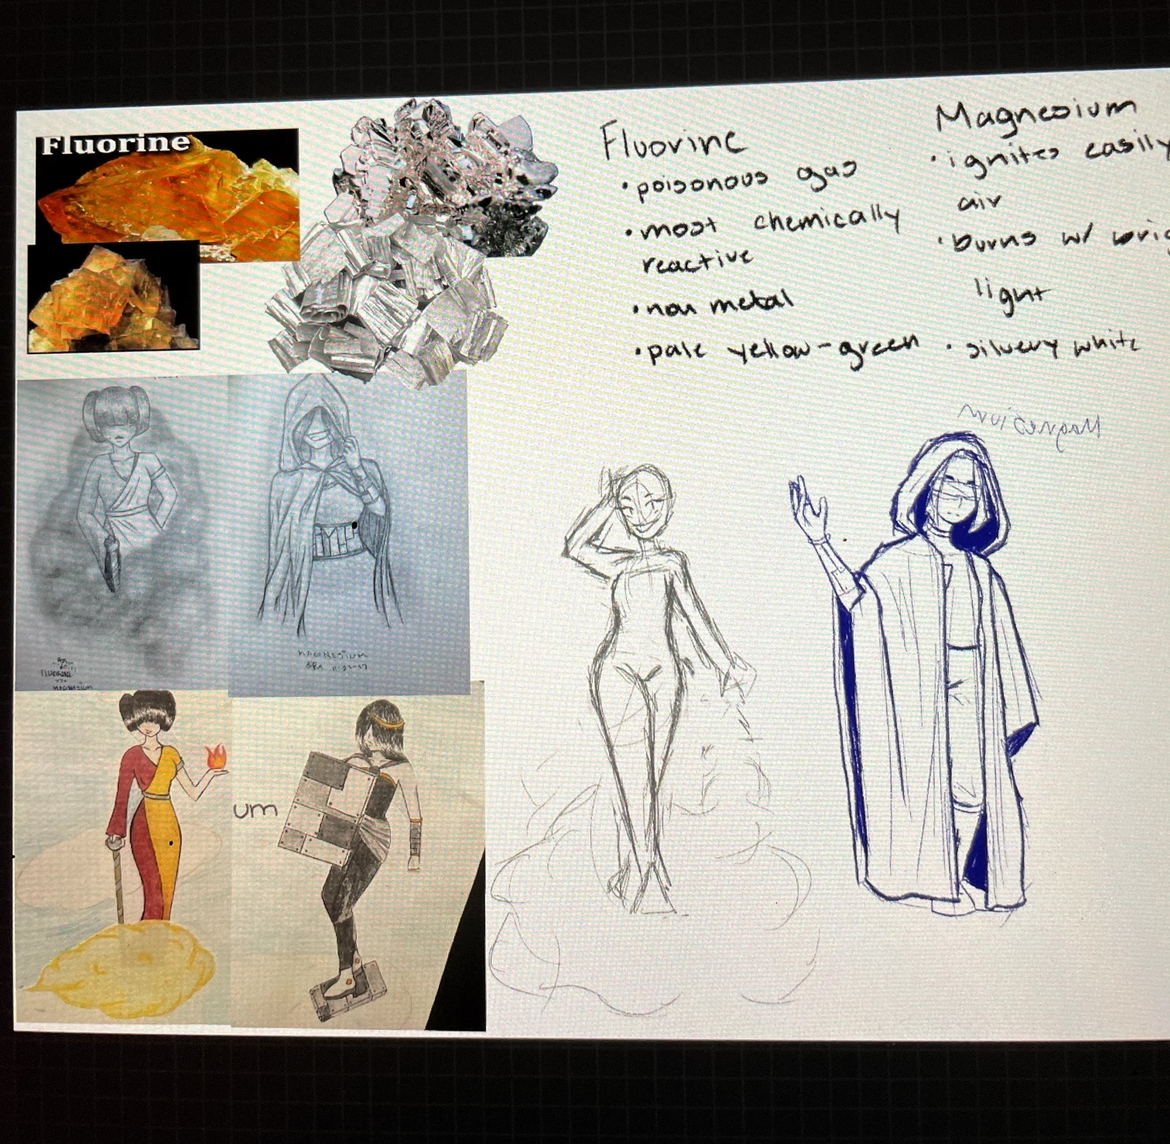 Fluorine
Fluorine
•poisonous gas
•most chemically
reactive
•non metal
•pale yellow-green
Magnesium
•ignites easily
air
•burns w/ brig
light
•silvery white
Magnesium
MAGNESIUM
FLUORINE
MAGNESIUM
um